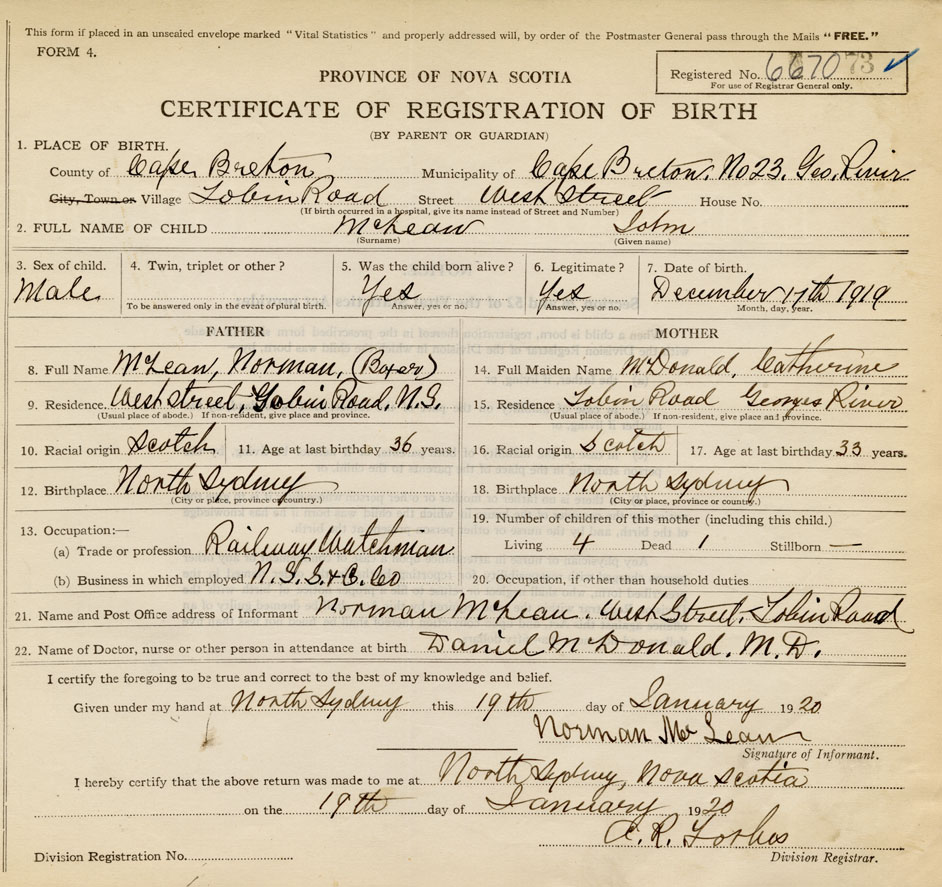 This form if placed in an unsealed envelope marked "Vital Statistics" and properly addressed will, by order of the Postmaster General pass through the Mails "FREE."
FORM 4.
Registered No. 667073 ✓
For use of Registrar General only.
PROVINCE OF NOVA SCOTIA
CERTIFICATE OF REGISTRATION OF BIRTH
(BY PARENT OR GUARDIAN)
1. PLACE OF BIRTH.
County of Cape Breton Municipality of Cape Breton. No 23. Geo. River
City, Town or Village Tobin Road Street West Street House No.
(If birth occurred in a hospital, give its name instead of Street and Number)
2. FULL NAME OF CHILD McLean John
(Surname) (Given name)
3. Sex of child. 4. Twin, triplet or other? 5. Was the child born alive? 6. Legitimate? 7. Date of birth.
Male Yes Yes December 17th 1919
To be answered only in the event of plural birth. Answer, yes or no. Answer, yes or no. Month, day, year.
FATHER MOTHER
8. Full Name McLean, Norman, (Boxer) 14. Full Maiden Name McDonald, Catherine
9. Residence West Street, Tobin Road, N.S. 15. Residence Tobin Road Georges River
(Usual place of abode.) If non-resident, give place and province. (Usual place of abode.) If non-resident, give place and province.
10. Racial origin Scotch 11. Age at last birthday 36 years. 16. Racial origin Scotch 17. Age at last birthday 33 years.
12. Birthplace North Sydney 18. Birthplace North Sydney
(City or place, province or country.) (City or place, province or country.)
13. Occupation:— 19. Number of children of this mother (including this child.)
(a) Trade or profession Railway Watchman Living 4 Dead 1 Stillborn —
(b) Business in which employed N.S.S. & C. Co 20. Occupation, if other than household duties
21. Name and Post Office address of Informant Norman McLean. West Street. Tobin Road
22. Name of Doctor, nurse or other person in attendance at birth Daniel McDonald. M.D.
I certify the foregoing to be true and correct to the best of my knowledge and belief.
Given under my hand at North Sydney this 19th day of January 1920
Norman McLean
Signature of Informant.
I hereby certify that the above return was made to me at North Sydney, Nova Scotia
on the 19th day of January 1920
Forbes
Division Registration No. Division Registrar.